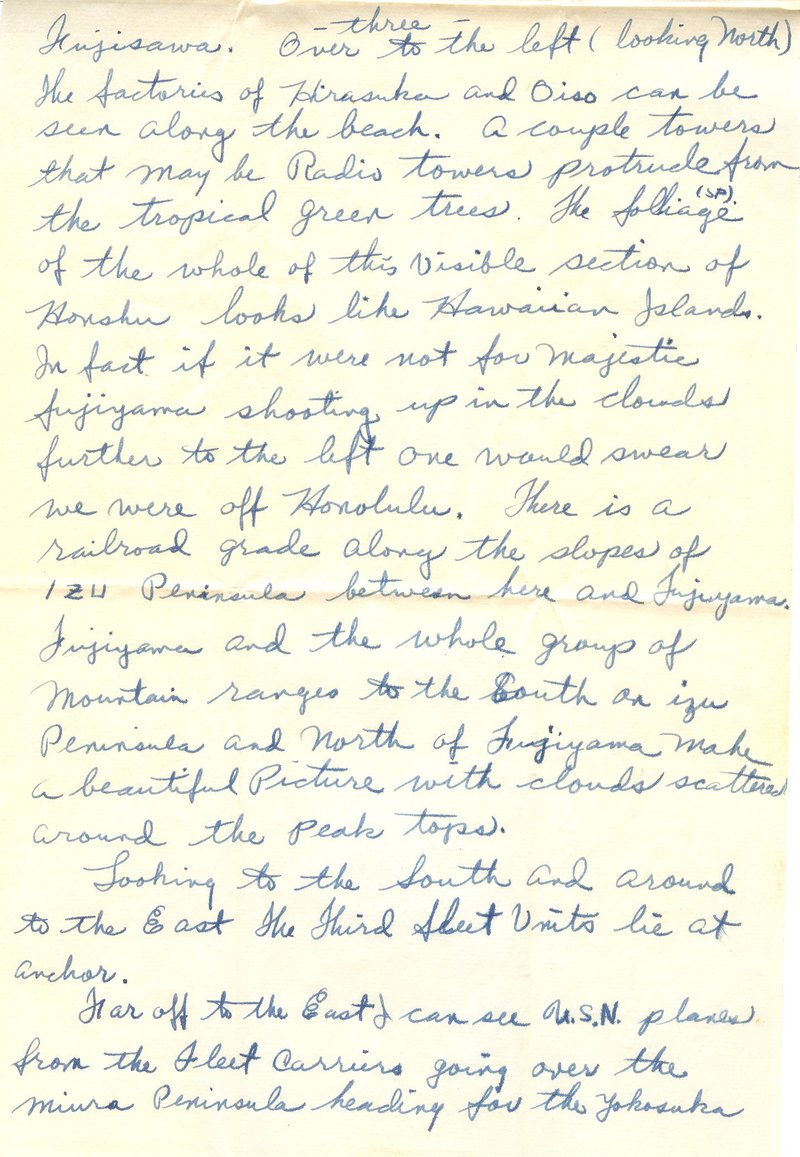 Fujisawa. Over three to the left (looking North)
The factories of Hirasuka and Oiso can be
seen along the beach. A couple towers
that may be Radio towers protrude from
the tropical green trees. The folliage (SP)
of the whole of this Visible section of
Honshu looks like Hawaiian Islands.
In fact if it were not for majestic
fujiyama shooting up in the clouds
further to the left one would swear
we were off Honolulu. There is a
railroad grade along the slopes of
IZU Peninsula between here and Fujiyama.
Fujiyama and the whole group of
Mountain ranges to the South on izu
Peninsula and North of Fujiyama Make
a beautiful Picture with clouds scattered
around the Peak tops.
Looking to the South and around
to the East The Third fleet Units lie at
anchor.
Far off to the East I can see U.S.N. planes
from the Fleet Carriers going over the
Miura Peninsula heading for the Yokosuka